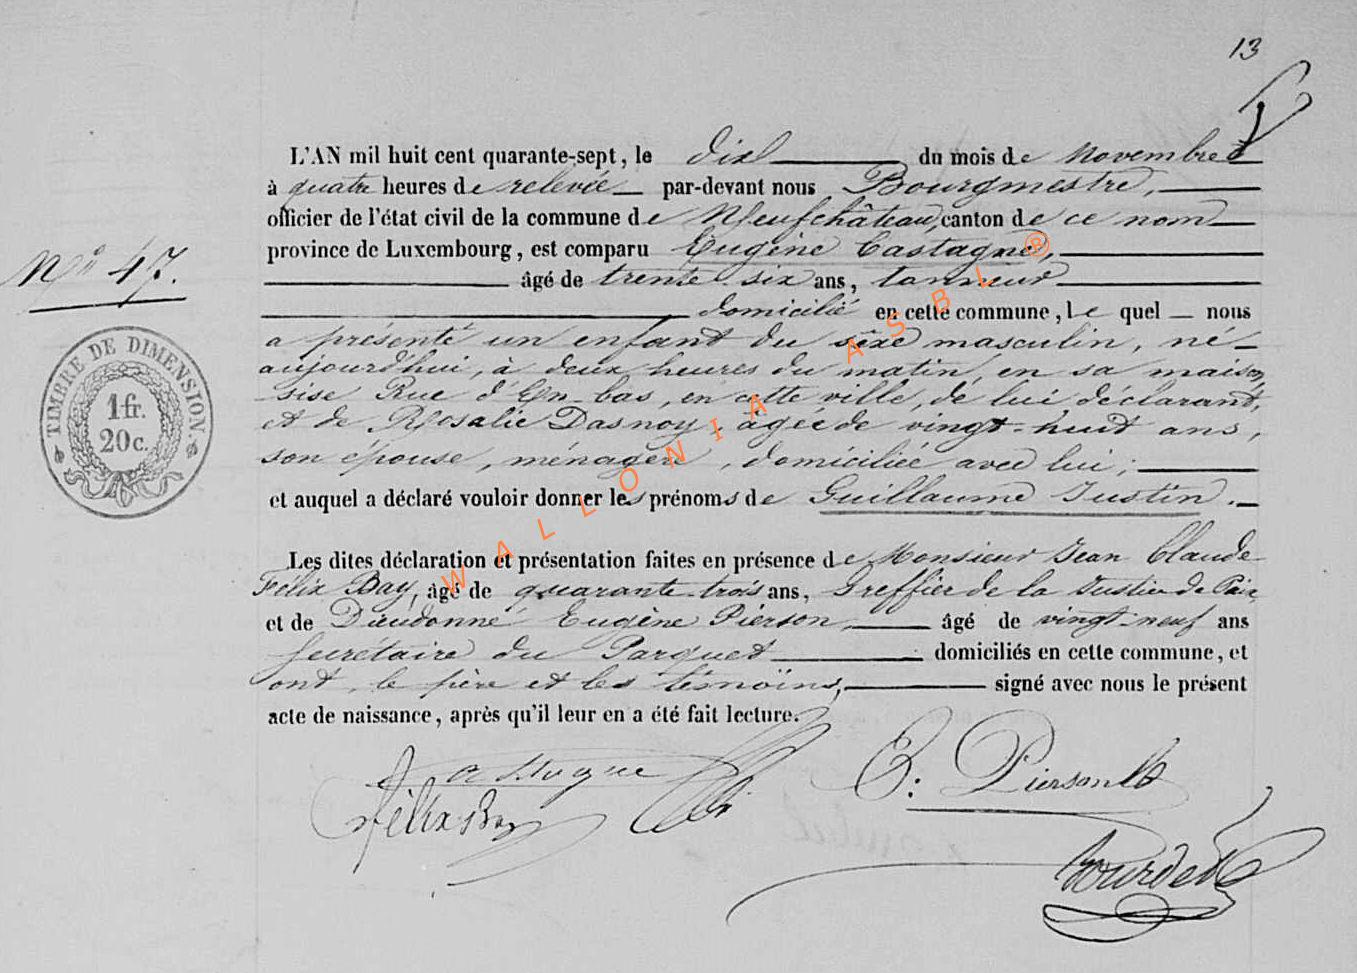 13
L'AN mil huit cent quarante-sept, le dix du mois de Novembre
à quatre heures de relevée par-devant nous Bourgmestre,
officier de l'état civil de la commune de Neufchâteau, canton de ce nom
province de Luxembourg, est comparu Eugène Castagne,
Nº 47.
âgé de trente six ans, tanneur
domicilié en cette commune, le quel nous
a présenté un enfant du sexe masculin, né
aujourd'hui, à deux heures du matin, en sa maison
sise Rue d'En-bas, en cette ville, de lui déclarant,
et de Rosalie Dasnoy, âgée de vingt-huit ans,
son épouse, ménagère, domiciliée avec lui;
et auquel a déclaré vouloir donner les prénoms de Guillaume Justin.
TIMBRE DE DIMENSION.
1 fr.
20 c.
Les dites déclaration et présentation faites en présence de Monsieur Jean Claude
Félix Bay, âgé de quarante-trois ans, Greffier de la Justice de Paix,
et de Dieudonné Eugène Pierson, âgé de vingt-neuf ans
Secrétaire du Parquet domiciliés en cette commune, et
ont, le père et les témoins, signé avec nous le présent
acte de naissance, après qu'il leur en a été fait lecture.
Castagne
E. Pierson
Félix Bay
WALLONIA ASBL ®